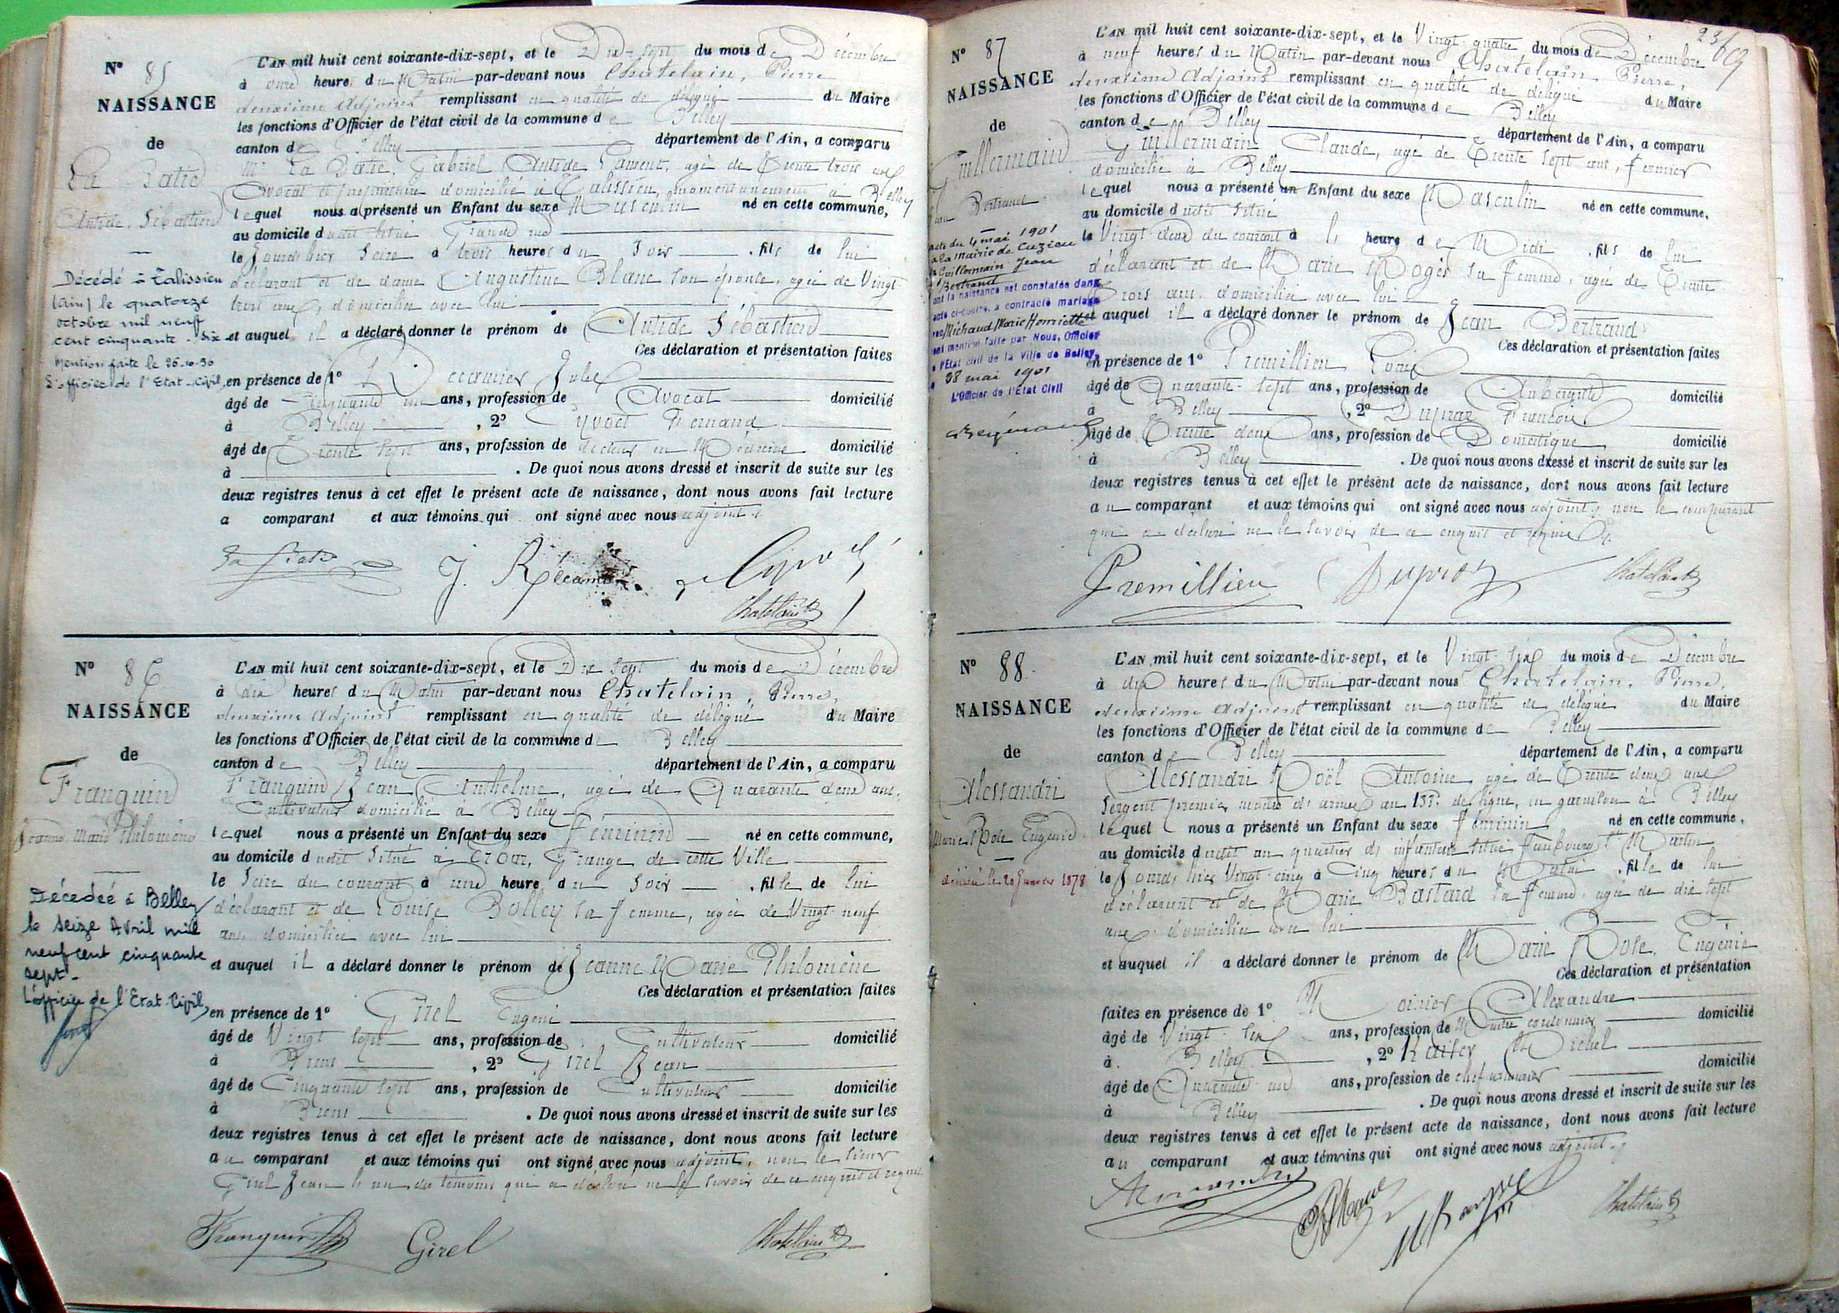 N° 85
NAISSANCE
de
La Batie
Antide Sébastien
Décédé à Talissieu
(Ain) le quatorze
octobre mil neuf
cent cinquante. six
Mention faite le 26-10-56
L'officier de l'Etat-Civil,
L'AN mil huit cent soixante-dix-sept, et le Dix-sept du mois de Décembre
à onze heures du Matin par-devant nous Chatelain, Pierre
deuxième Adjoint remplissant en qualité de délégué du Maire
les fonctions d'Officier de l'état civil de la commune de Belley
canton de Belley département de l'Ain, a comparu
M. La Batie, Gabriel Antide Laurent, agé de Trente trois ans
Avocat et propriétaire domicilié à Talissieu, momentanément à Belley
lequel nous a présenté un Enfant du sexe Masculin né en cette commune,
au domicile dudit situé Grande rue
le Jourd'hier Seize à trois heures du Soir . fils de lui
déclarant et de dame Augustine Blanc son épouse, agée de Vingt
trois ans, domiciliée avec lui
et auquel il a déclaré donner le prénom de Antide Sébastien
Ces déclaration et présentation faites
en présence de 1° Récamier Jules
âgé de Cinquante un ans, profession de Avocat domicilié
à Belley , 2° Gyvoct Fernand
âgé de Trente sept ans, profession de docteur en Médecine domicilié
à . De quoi nous avons dressé et inscrit de suite sur les
deux registres tenus à cet effet le présent acte de naissance, dont nous avons fait lecture
a comparant et aux témoins qui ont signé avec nous adjoint.
La Batie J. Récamier
Chatelain P.
N° 86
NAISSANCE
de
Franquin
Jeanne Marie Philomène
Décédée à Belley
le seize Avril mil
neuf cent cinquante
sept.
L'officier de l'Etat-Civil,
L'AN mil huit cent soixante-dix-sept, et le Dix Sept du mois de Décembre
à dix heures du Matin par-devant nous Chatelain, Pierre,
deuxième Adjoint remplissant en qualité de délégué du Maire
les fonctions d'Officier de l'état civil de la commune de Belley
canton de Belley département de l'Ain, a comparu
Franquin Jean Anthelme, agé de Quarante deux ans,
Cultivateur domicilié à Belley
lequel nous a présenté un Enfant du sexe Féminin né en cette commune,
au domicile dudit situé à Grange de cette Ville
le Seize du courant à une heure du Soir . fille de lui
déclarant et de Louise Bolley sa femme, agée de Vingt neuf
ans domiciliée avec lui
et auquel il a déclaré donner le prénom de Jeanne Marie Philomène
Ces déclaration et présentation faites
en présence de 1° Girel Eugène
âgé de Vingt sept ans, profession de Cultivateur domicilié
à Brens , 2° Girel Jean
âgé de Cinquante sept ans, profession de Cultivateur domicilié
à Brens . De quoi nous avons dressé et inscrit de suite sur les
deux registres tenus à cet effet le présent acte de naissance, dont nous avons fait lecture
au comparant et aux témoins qui ont signé avec nous adjoint, non le sieur
Girel Jean l'un des témoins qui a déclaré ne le savoir de ce enquis et requis
Franquin Girel Chatelain P.
23/69
N° 87
NAISSANCE
de
Guillermain
Jean Bertrand
acte du 4 mai 1901
à la mairie de Cuzieu
Guillermain Jean
Bertrand
dont la naissance est constatée dans
acte ci-contre, a contracté mariage
avec Michaud Marie Henriette
dont mention faite par Nous, Officier
de l'Etat civil de la Ville de Belley,
le 28 mai 1901
L'Officier de l'Etat Civil
L'AN mil huit cent soixante-dix-sept, et le Vingt-quatre du mois de Décembre
à neuf heures du Matin par-devant nous Chatelain Pierre,
deuxième Adjoint remplissant en qualité de délégué du Maire
les fonctions d'Officier de l'état civil de la commune de Belley
canton de Belley département de l'Ain, a comparu
Guillermain Claude, agé de Trente sept ans, fermier
domicilié à Belley
lequel nous a présenté un Enfant du sexe Masculin né en cette commune,
au domicile dudit situé
le Vingt-deux du courant à heure de Midi . fils de lui
déclarant et de Marie Moger sa femme, agée de Trente
trois ans domiciliée avec lui
et auquel il a déclaré donner le prénom de Jean Bertrand
Ces déclaration et présentation faites
en présence de 1° Premillieu
âgé de Quarante-sept ans, profession de Aubergiste domicilié
à Belley , 2° Dupraz François
âgé de Trente deux ans, profession de Domestique domicilié
à Belley . De quoi nous avons dressé et inscrit de suite sur les
deux registres tenus à cet effet le présent acte de naissance, dont nous avons fait lecture
au comparant et aux témoins qui ont signé avec nous adjoint, non le comparant
qui a déclaré ne le savoir de ce enquis et requis
Premillieu Dupraz Chatelain P.
N° 88
NAISSANCE
de
Alessandri
Marie Rose Eugénie
décédée le 20 Janvier 1878
L'AN mil huit cent soixante-dix-sept, et le Vingt-six du mois de Décembre
à dix heures du Matin par-devant nous Chatelain, Pierre,
deuxième Adjoint remplissant en qualité de délégué du Maire
les fonctions d'Officier de l'état civil de la commune de Belley
canton de Belley département de l'Ain, a comparu
Alessandri Noël Antoine agé de Trente deux ans
Sergent premier maître d'armes au 133e de ligne, en garnison à Belley
lequel nous a présenté un Enfant du sexe féminin né en cette commune,
au domicile dudit au quartier d'infanterie situé faubourg St Martin
le Jourd'hier Vingt-cinq à Cinq heures du Matin . fille de lui
déclarant et de Marie Bastard sa femme, agée de dix sept
ans domiciliée avec lui
et auquel il a déclaré donner le prénom de Marie Rose Eugénie
Ces déclaration et présentation
faites en présence de 1° Alexandre
âgé de Vingt-six ans, profession de Maître cordonnier domicilié
à Belley , 2° Kaiser Michel
âgé de Quarante un ans, profession de chef armurier domicilié
à Belley . De quoi nous avons dressé et inscrit de suite sur les
deux registres tenus à cet effet le présent acte de naissance, dont nous avons fait lecture
au comparant et aux témoins qui ont signé avec nous adjoint.
Chatelain P.